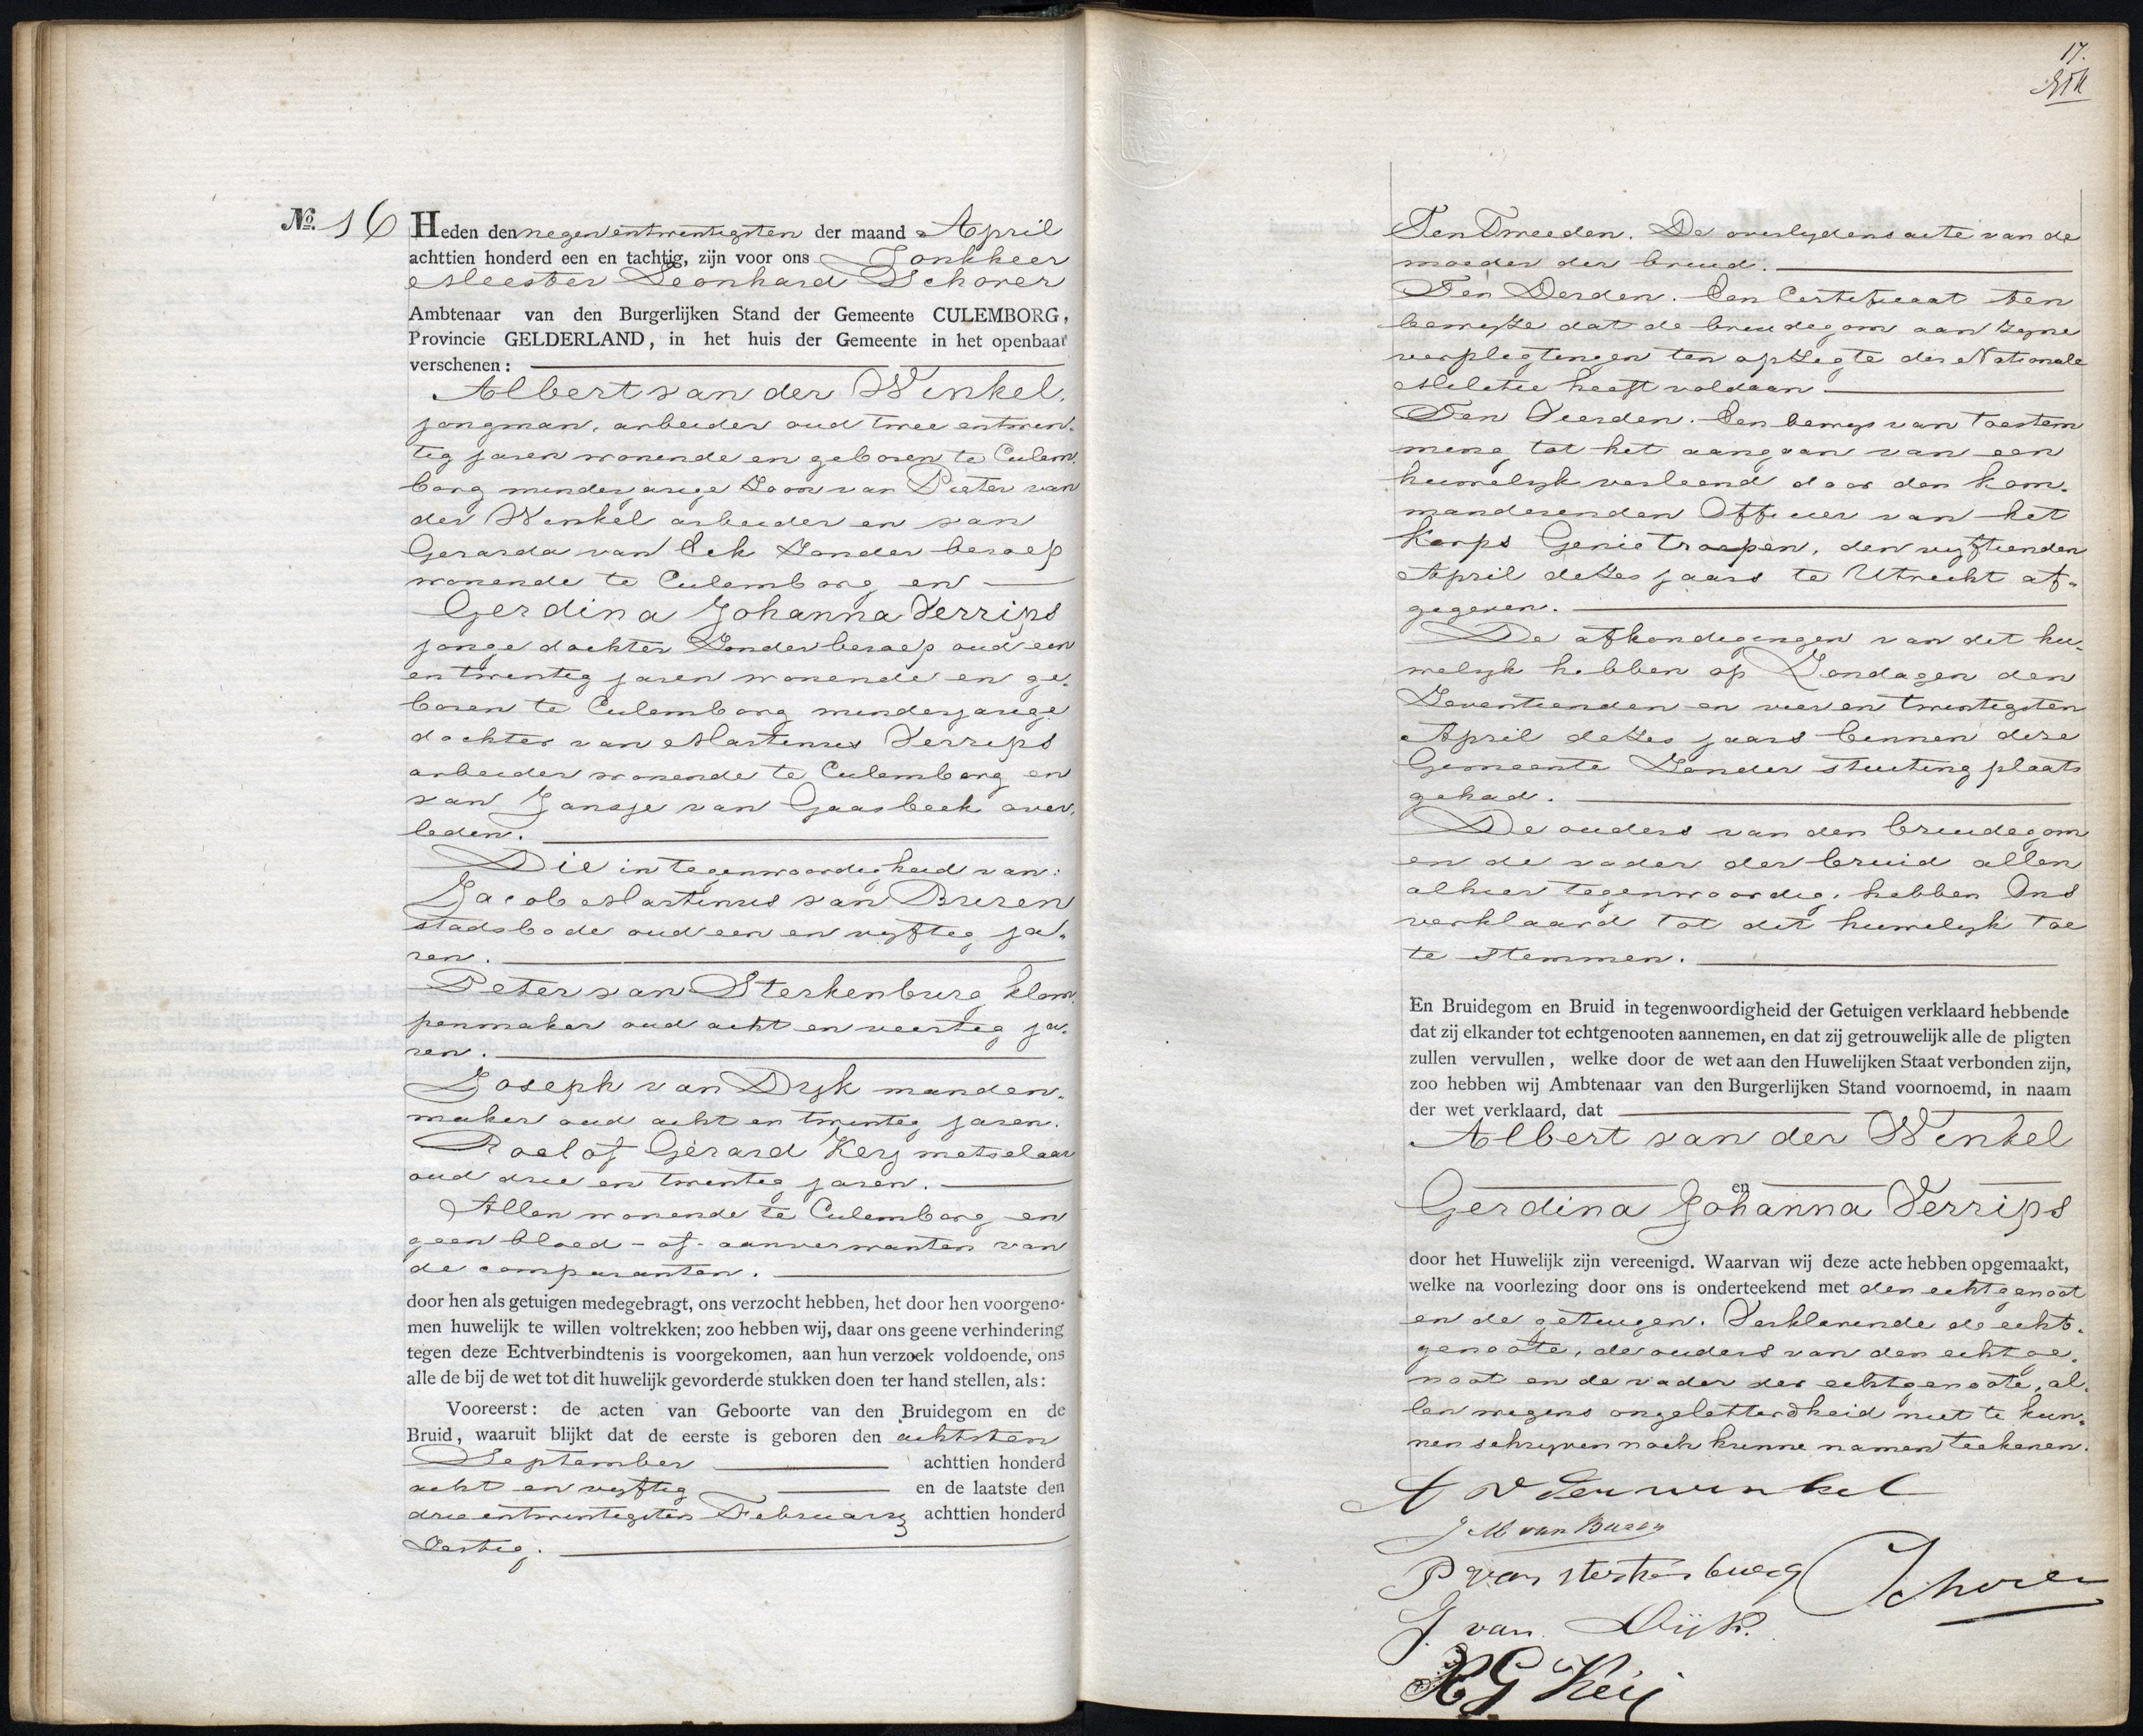 No. 16 Heden den negenentwintigsten der maand April
achttien honderd een en tachtig, zijn voor ons Jonkheer
Meester Leonhard Schorer
Ambtenaar van den Burgerlijken Stand der Gemeente CULEMBORG,
Provincie GELDERLAND, in het huis der Gemeente in het openbaar
verschenen:
Albert van der Winkel,
jongman, arbeider oud twee entwin-
tig jaren wonende en geboren te Culem
borg minderjarige Zoon van Pieter van
der Winkel arbeider en van
Gerarda van Eck Zonder beroep
wonende te Culemborg en
Gerdina Johanna Verrips
jonge dochter Zonder beroep oud een
en twintig jaren wonende en ge-
boren te Culemborg minderjarige
dochter van Martinus Verrips
arbeider wonende te Culemborg en
van Jansje van Gaasbeek over-
leden.
Die in tegenwoordigheid van:
Jacob Martinus van Buren
stadsbode oud een en vijftig ja-
ren.
Peter van Sterkenburg klom
penmaker oud acht en veertig ja-
ren.
Joseph van Dijk manden-
maker oud acht en twintig jaren.
Roelof Gerard Keij metselaar
oud drie en twintig jaren.
Allen wonende te Culemborg en
geen bloed- of aanverwanten van
de comparanten.
door hen als getuigen medegebragt, ons verzocht hebben, het door hen voorgeno-
men huwelijk te willen voltrekken; zoo hebben wij, daar ons geene verhindering
tegen deze Echtverbindtenis is voorgekomen, aan hun verzoek voldoende, ons
alle de bij de wet tot dit huwelijk gevorderde stukken doen ter hand stellen, als:
Vooreerst: de acten van Geboorte van den Bruidegom en de
Bruid, waaruit blijkt dat de eerste is geboren den achtsten
September achttien honderd
acht en vijftig en de laatste den
drieentwintigsten February achttien honderd
Zestig.
17.
Ten Tweeden. De overlydens acte van de
moeder der bruid.
Ten Derden. Een Certificaat ten
bewijze dat de bruidegom aan Zyne
verpligtingen ten opzegte der Nationale
Militie heeft voldaan
Ten Vierden. Een bewys van toestem
ming tot het aangaan van een
huwelyk verleend door den kom-
manderenden Officier van het
Korps Genietroepen, den vyftienden
April dezes jaars te Utrecht af-
gegeven.
De afkondigingen van dit hu-
welyk hebben op Zondagen den
Zeventienden en vier en twintigsten
April dezes jaars binnen deze
Gemeente Zonder stuiting plaats
gehad.
De ouders van den bruidegom
en de vader der bruid allen
alhier tegenwoordig, hebben Ons
verklaard tot dit huwelyk toe
te stemmen.
En Bruidegom en Bruid in tegenwoordigheid der Getuigen verklaard hebbende
dat zij elkander tot echtgenooten aannemen, en dat zij getrouwelijk alle de pligten
zullen vervullen, welke door de wet aan den Huwelijken Staat verbonden zijn,
zoo hebben wij Ambtenaar van den Burgerlijken Stand voornoemd, in naam
der wet verklaard, dat
Albert van der Winkel
en
Gerdina Johanna Verrips
door het Huwelijk zijn vereenigd. Waarvan wij deze acte hebben opgemaakt,
welke na voorlezing door ons is onderteekend met den echtgenoot
en de getuigen. Verklarende de echt-
genoote, de ouders van den echtge-
noot en de vader der echtgenoote, al-
len wegens ongeletterdheid niet te kun-
nen schryven noch hunne namen teekenen.
A v der winkel
J M van Buren
P van sterkenburg
Schorer
J. van Dijk.
R G Keij